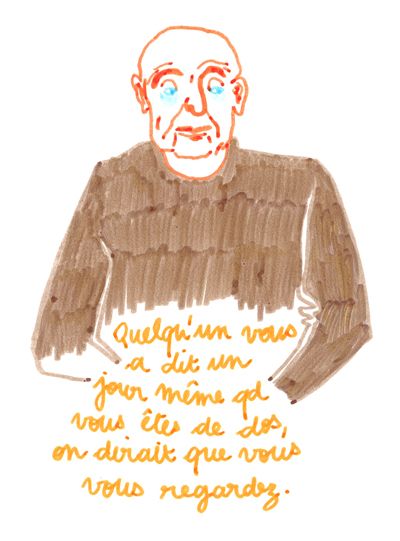 Quelqu'un vous
a dit un
jour même qd
vous êtes de dos,
on dirait que vous
vous regardez.